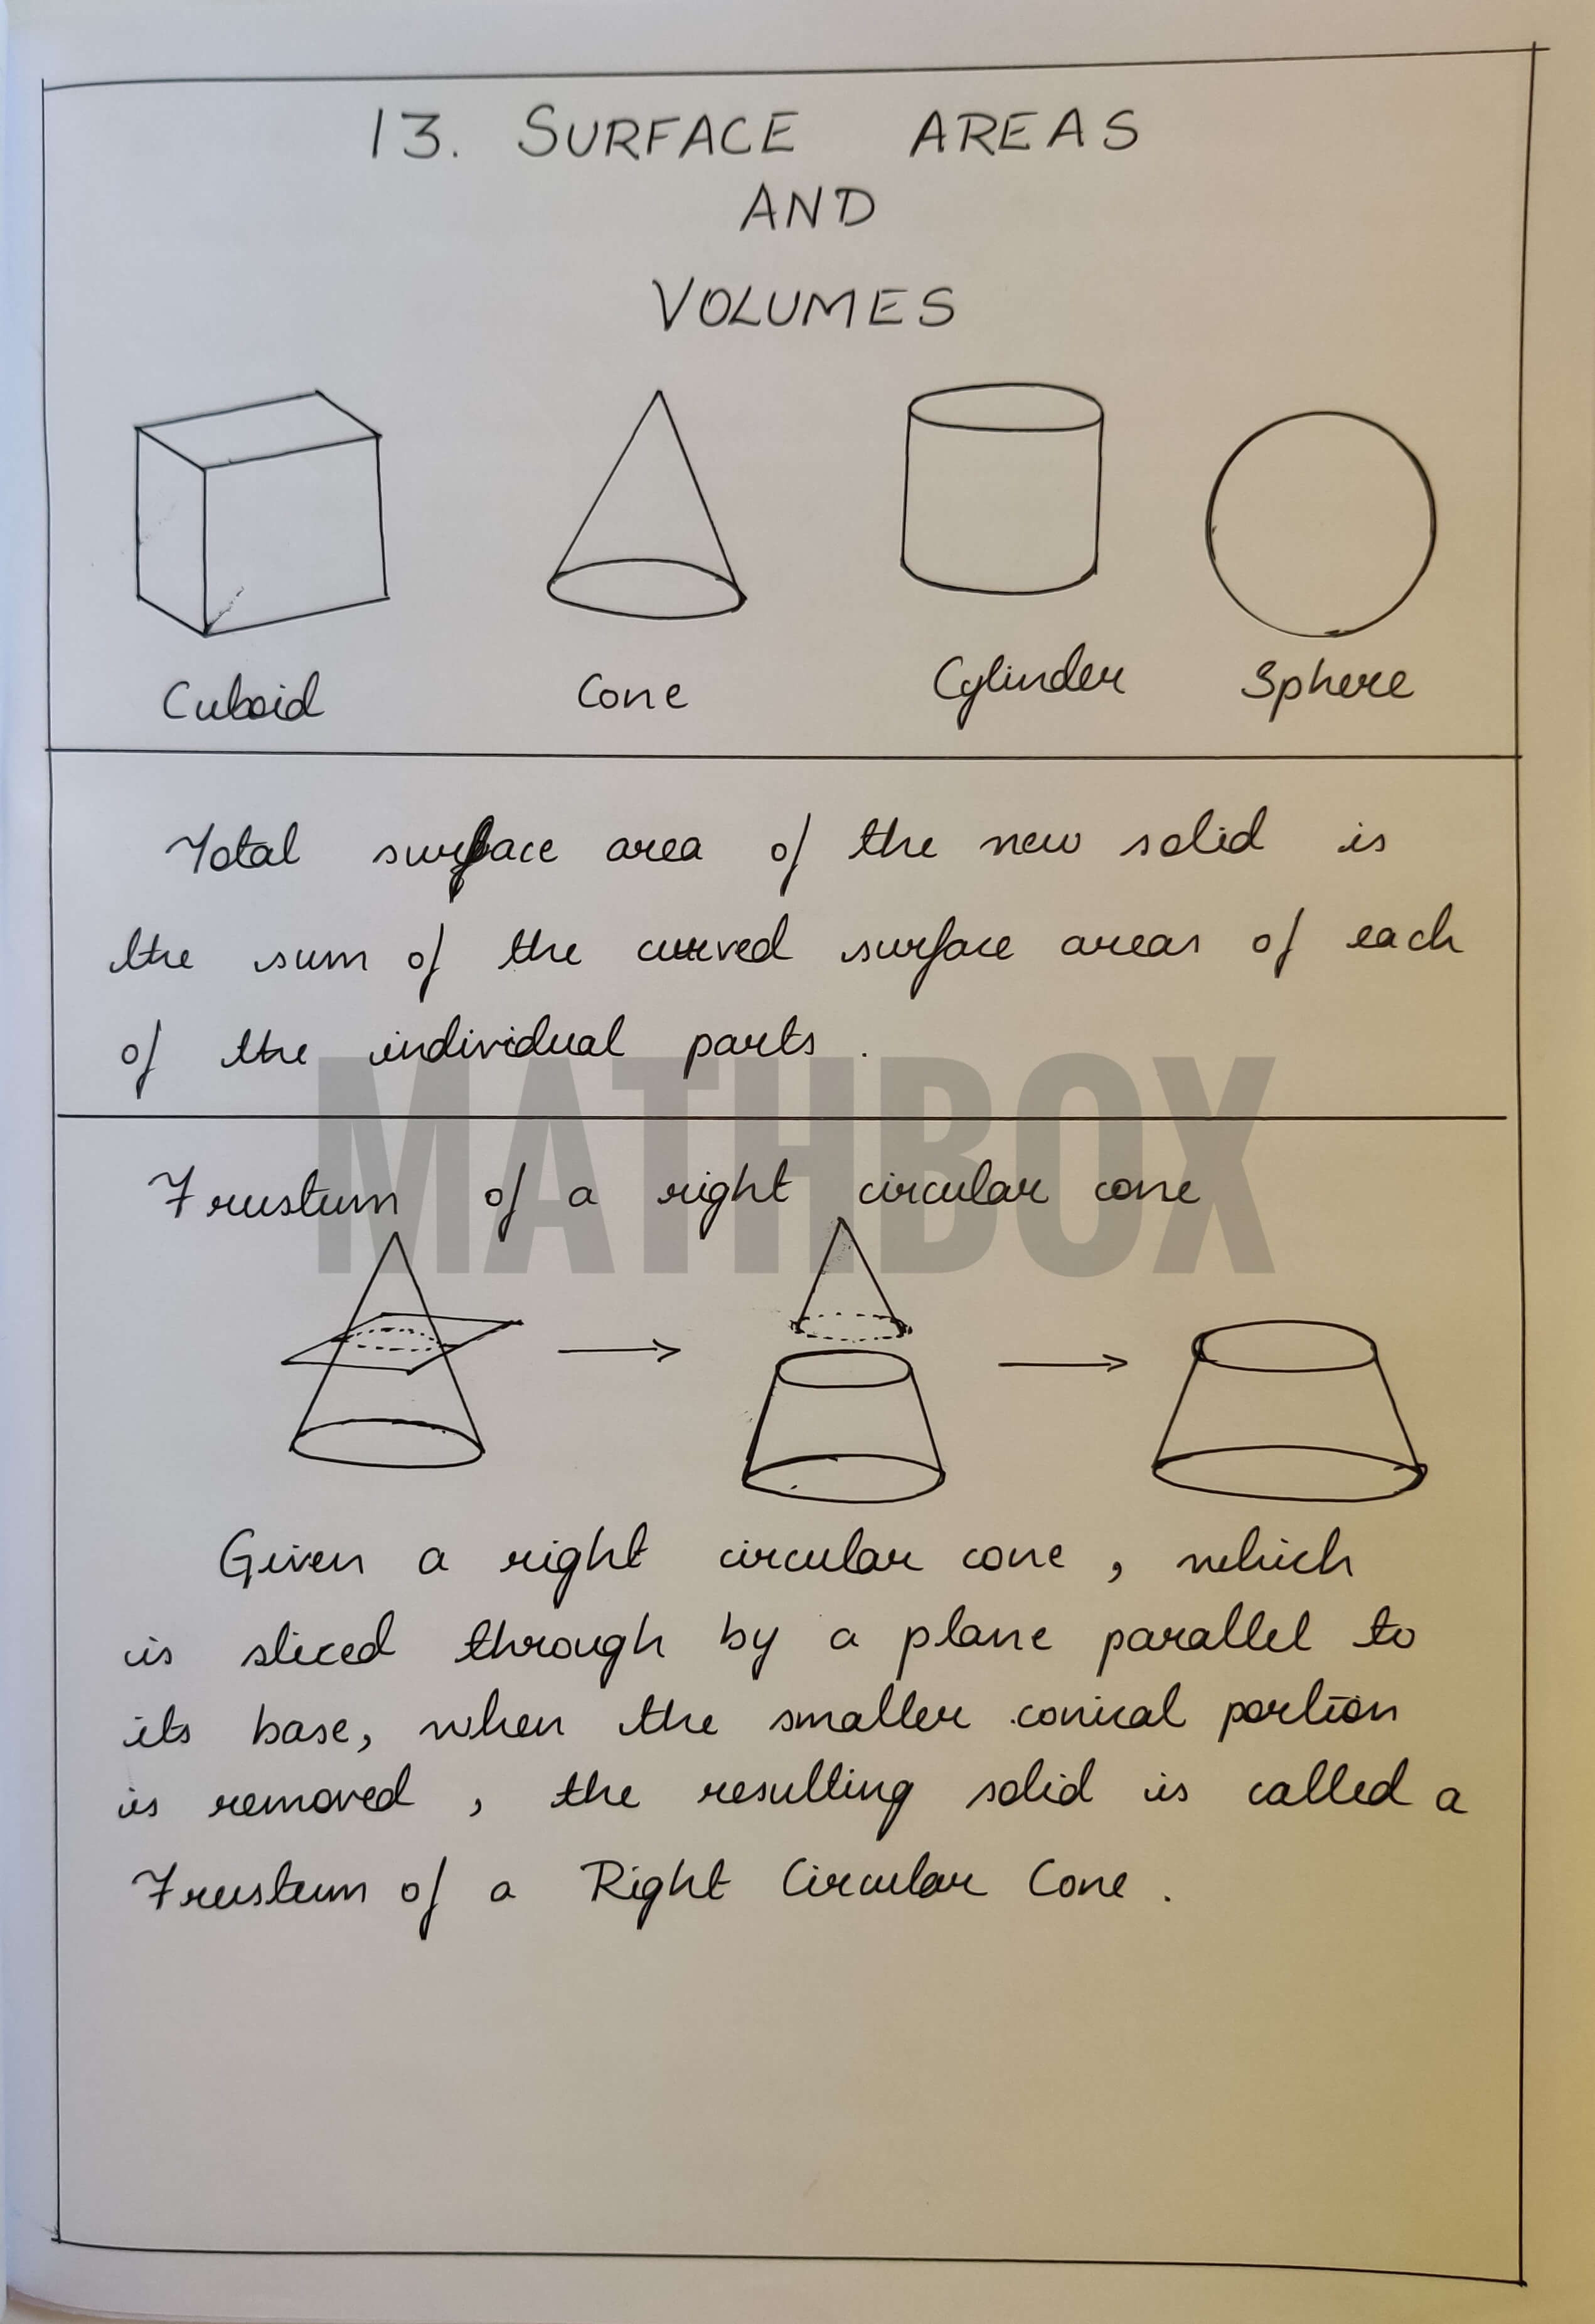 13. SURFACE AREAS
AND
VOLUMES
Cuboid Cone Cylinder Sphere
Total surface area of the new solid is
the sum of the curved surface areas of each
of the individual parts.
MATHBOX
Frustum of a right circular cone
Given a right circular cone, which
is sliced through by a plane parallel to
its base, when the smaller conical portion
is removed, the resulting solid is called a
Frustum of a Right Circular Cone.